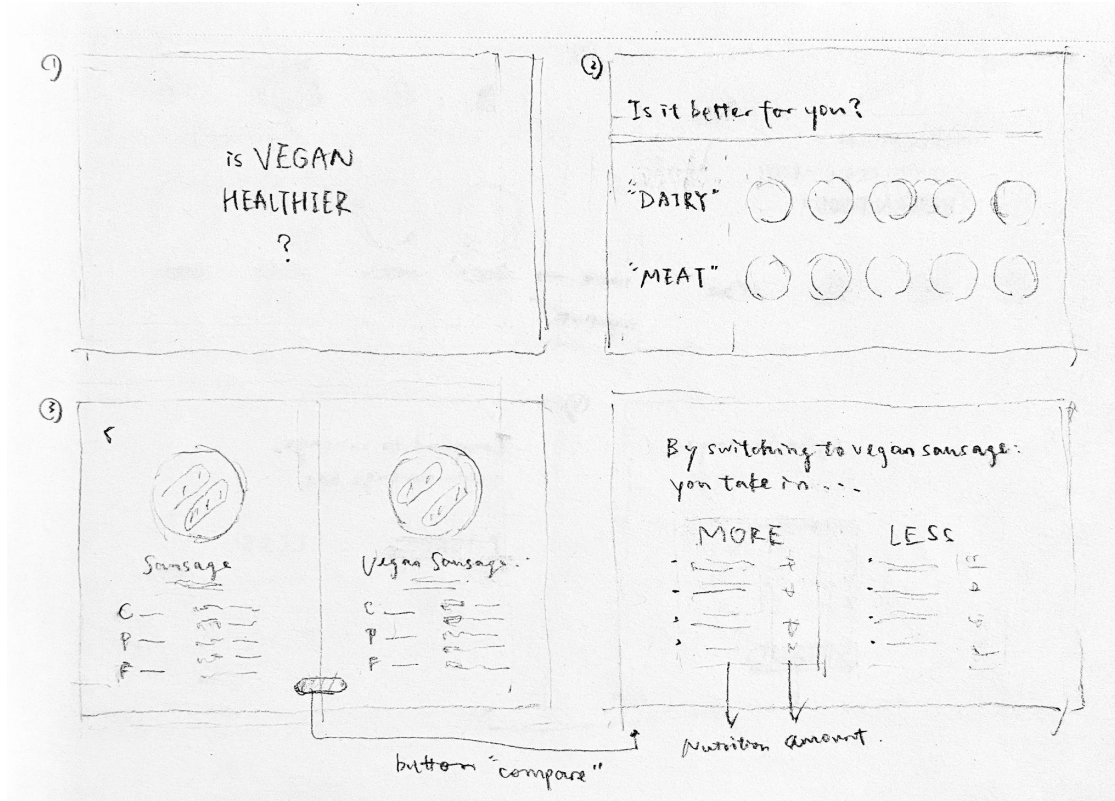 ①
is VEGAN
HEALTHIER
?
②
Is it better for you?
"DAIRY"
"MEAT"
③
Sausage
C
P
F
Vegan Sausage
C
P
F
button "compare"
By switching to vegan sausage:
you take in...
MORE
LESS
Nutrition amount.